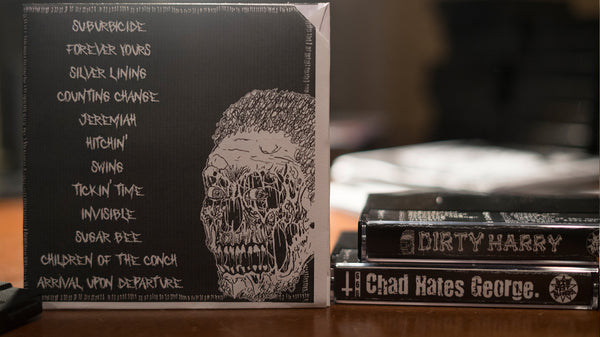 SUBURBICIDE
FOREVER YOURS
SILVER LINING
COUNTING CHANGE
JEREMIAH
HITCHIN'
SWING
TICKIN' TIME
INVISIBLE
SUGAR BEE
CHILDREN OF THE CONCH
ARRIVAL UPON DEPARTURE
DIRTY HARRY
Chad Hates George.